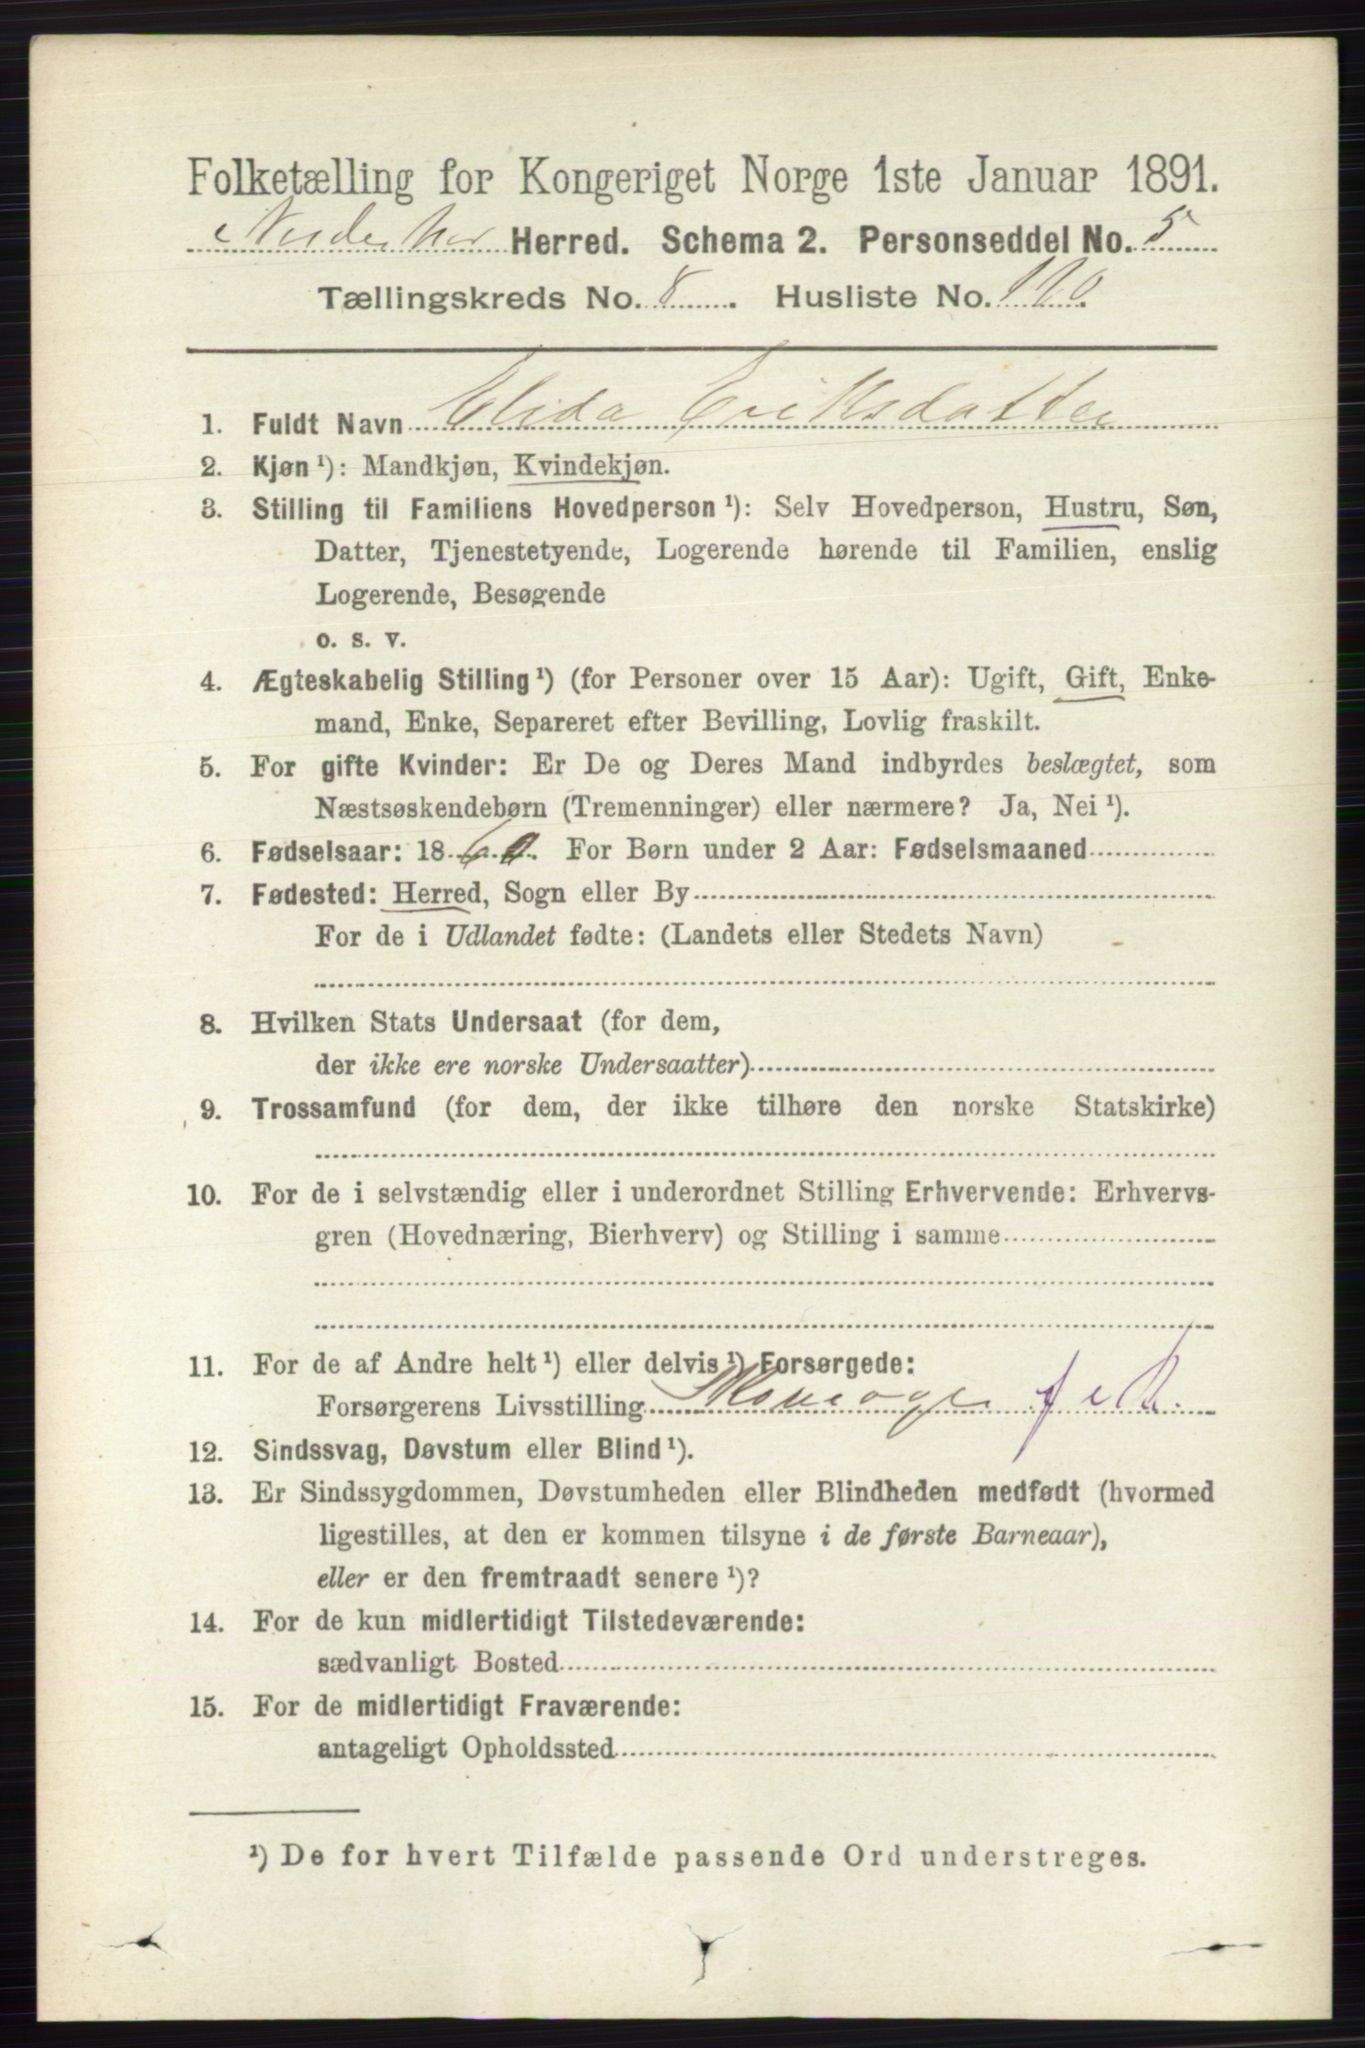 Folketælling for Kongeriget Norge 1ste Januar 1891.
Norderhov Herred. Schema 2. Personseddel No. 5
Tællingskreds No. 8. Husliste No. 120.
1. Fuldt Navn Elida Eriksdatter
2. Kjøn ¹): Mandkjøn, Kvindekjøn.
3. Stilling til Familiens Hovedperson ¹): Selv Hovedperson, Hustru, Søn,
Datter, Tjenestetyende, Logerende hørende til Familien, enslig
Logerende, Besøgende
o. s. v.
4. Ægteskabelig Stilling ¹) (for Personer over 15 Aar): Ugift, Gift, Enke-
mand, Enke, Separeret efter Bevilling, Lovlig fraskilt.
5. For gifte Kvinder: Er De og Deres Mand indbyrdes beslægtet, som
Næstsøskendebørn (Tremenninger) eller nærmere? Ja, Nei ¹).
6. Fødselsaar: 186 For Børn under 2 Aar: Fødselsmaaned
7. Fødested: Herred, Sogn eller By
For de i Udlandet fødte: (Landets eller Stedets Navn)
8. Hvilken Stats Undersaat (for dem,
der ikke ere norske Undersaatter)
9. Trossamfund (for dem, der ikke tilhøre den norske Statskirke)
10. For de i selvstændig eller i underordnet Stilling Erhvervende: Erhvervs-
gren (Hovednæring, Bierhverv) og Stilling i samme
11. For de af Andre helt ¹) eller delvis ¹) Forsørgede:
Forsørgerens Livsstilling
12. Sindssvag, Døvstum eller Blind ¹).
13. Er Sindssygdommen, Døvstumheden eller Blindheden medfødt (hvormed
ligestilles, at den er kommen tilsyne i de første Barneaar),
eller er den fremtraadt senere ¹)?
14. For de kun midlertidigt Tilstedeværende:
sædvanligt Bosted
15. For de midlertidigt Fraværende:
antageligt Opholdssted
¹) De for hvert Tilfælde passende Ord understreges.